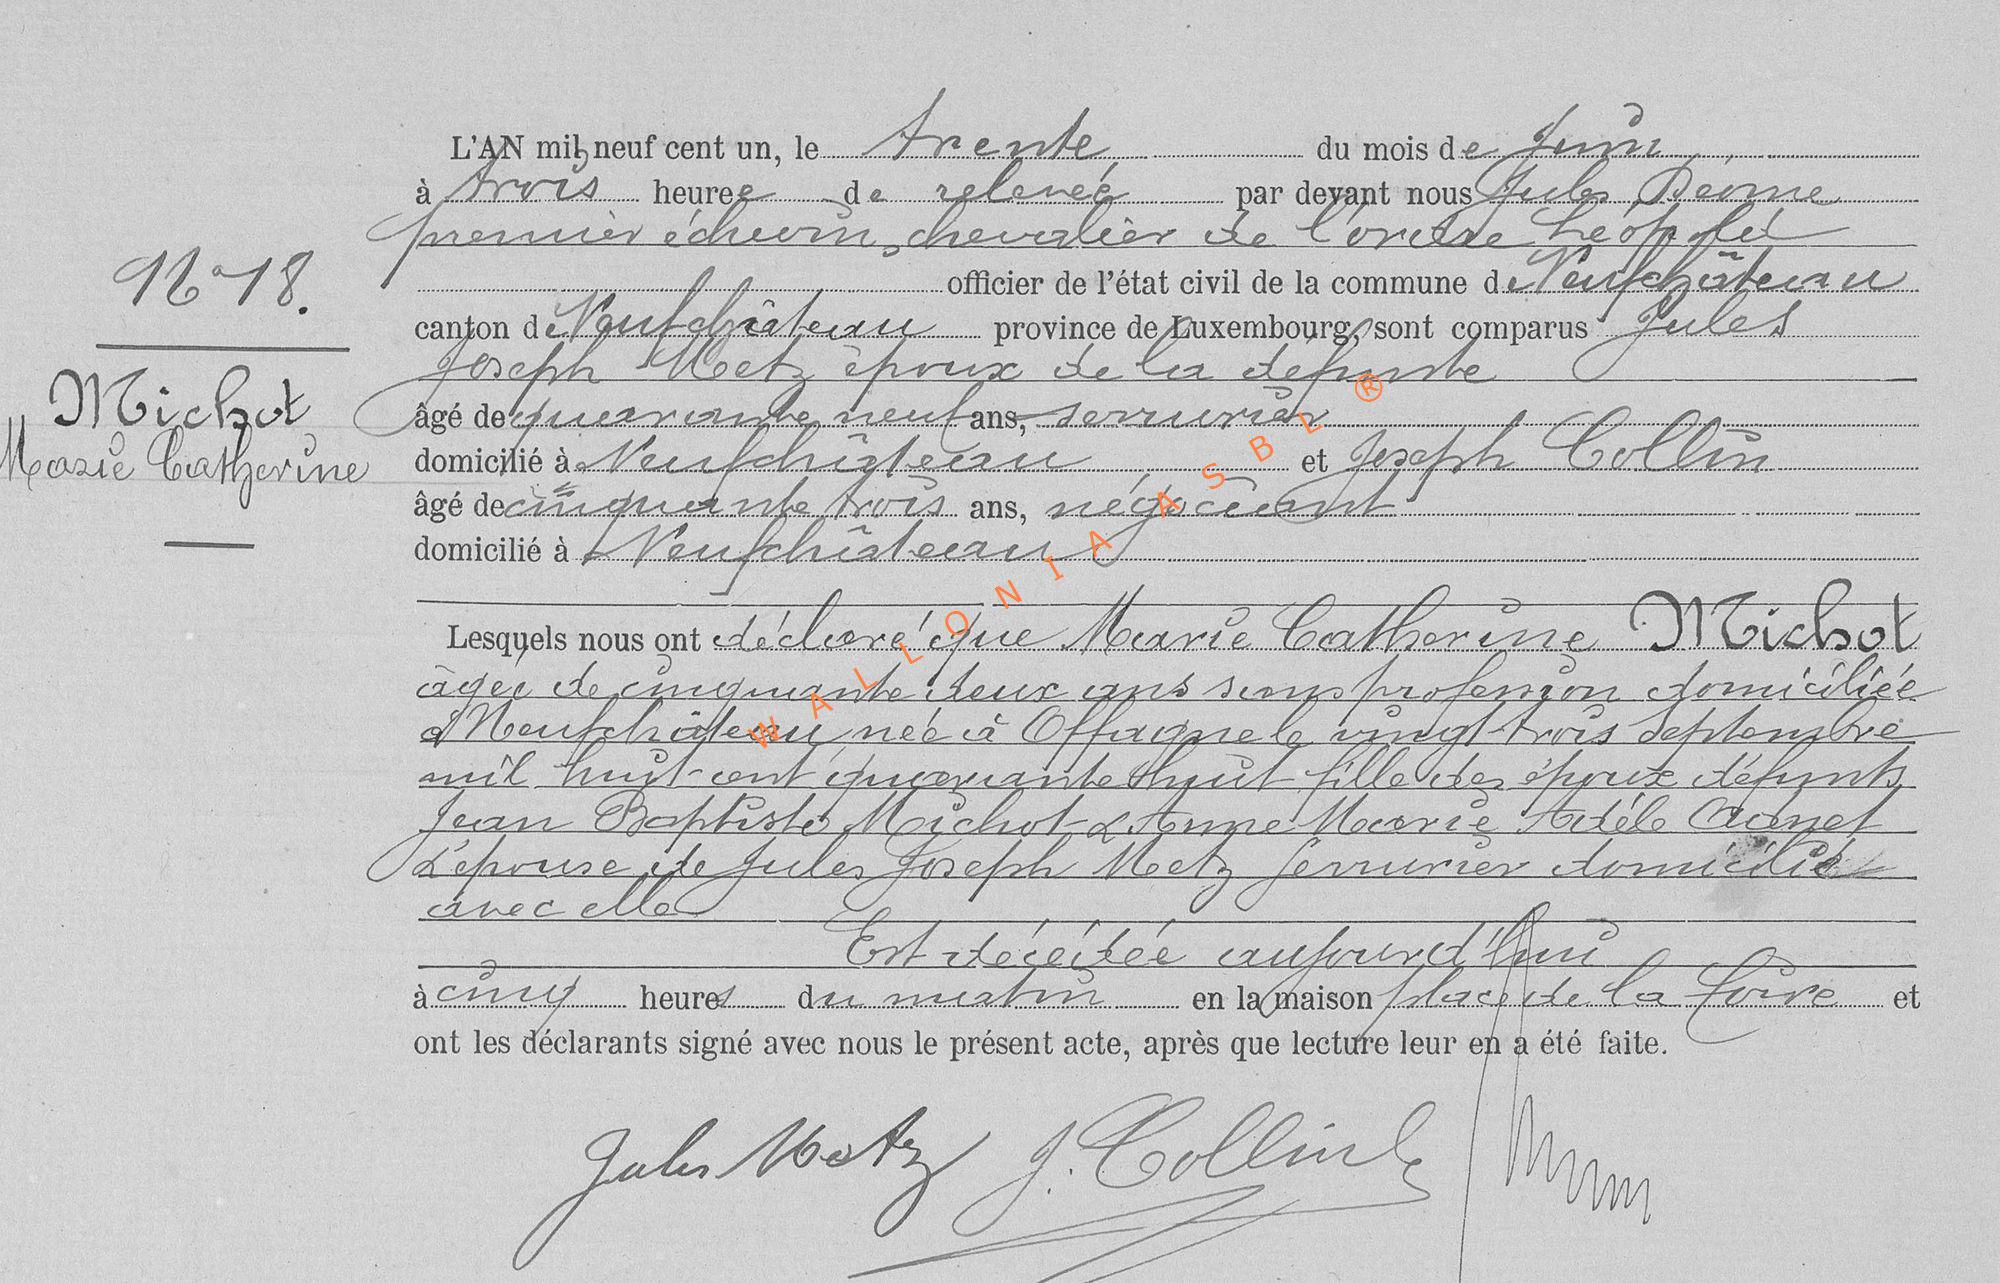 L'AN mil neuf cent un, le trente du mois de Juin
à trois heures de relevée par devant nous Jules
premier échevin, chevalier de l'ordre Léopold
N° 18.
officier de l'état civil de la commune de Neufchâteau
canton de Neufchâteau province de Luxembourg, sont comparus Jules
Joseph Metz époux de la défunte
Michot
Marie Catherine
âgé de quarante neuf ans, serrurier
domicilié à Neufchâteau et Joseph Collin
âgé de cinquante trois ans, négociant
domicilié à Neufchâteau
Lesquels nous ont déclaré que Marie Catherine Michot
âgée de cinquante deux ans sans profession domiciliée
à Neufchâteau, née à Offagne le vingt-trois Septembre
mil huit-cent quarante huit fille des époux défunts
Jean Baptiste Michot & Anne Marie Adèle
& épouse de Jules Joseph Metz serrurier domicilié
avec elle
Est décédée aujourd'hui
à cinq heures du matin en la maison place de la foire et
ont les déclarants signé avec nous le présent acte, après que lecture leur en a été faite.
Jules Metz J. Collin
WALLONIA ASBL ®